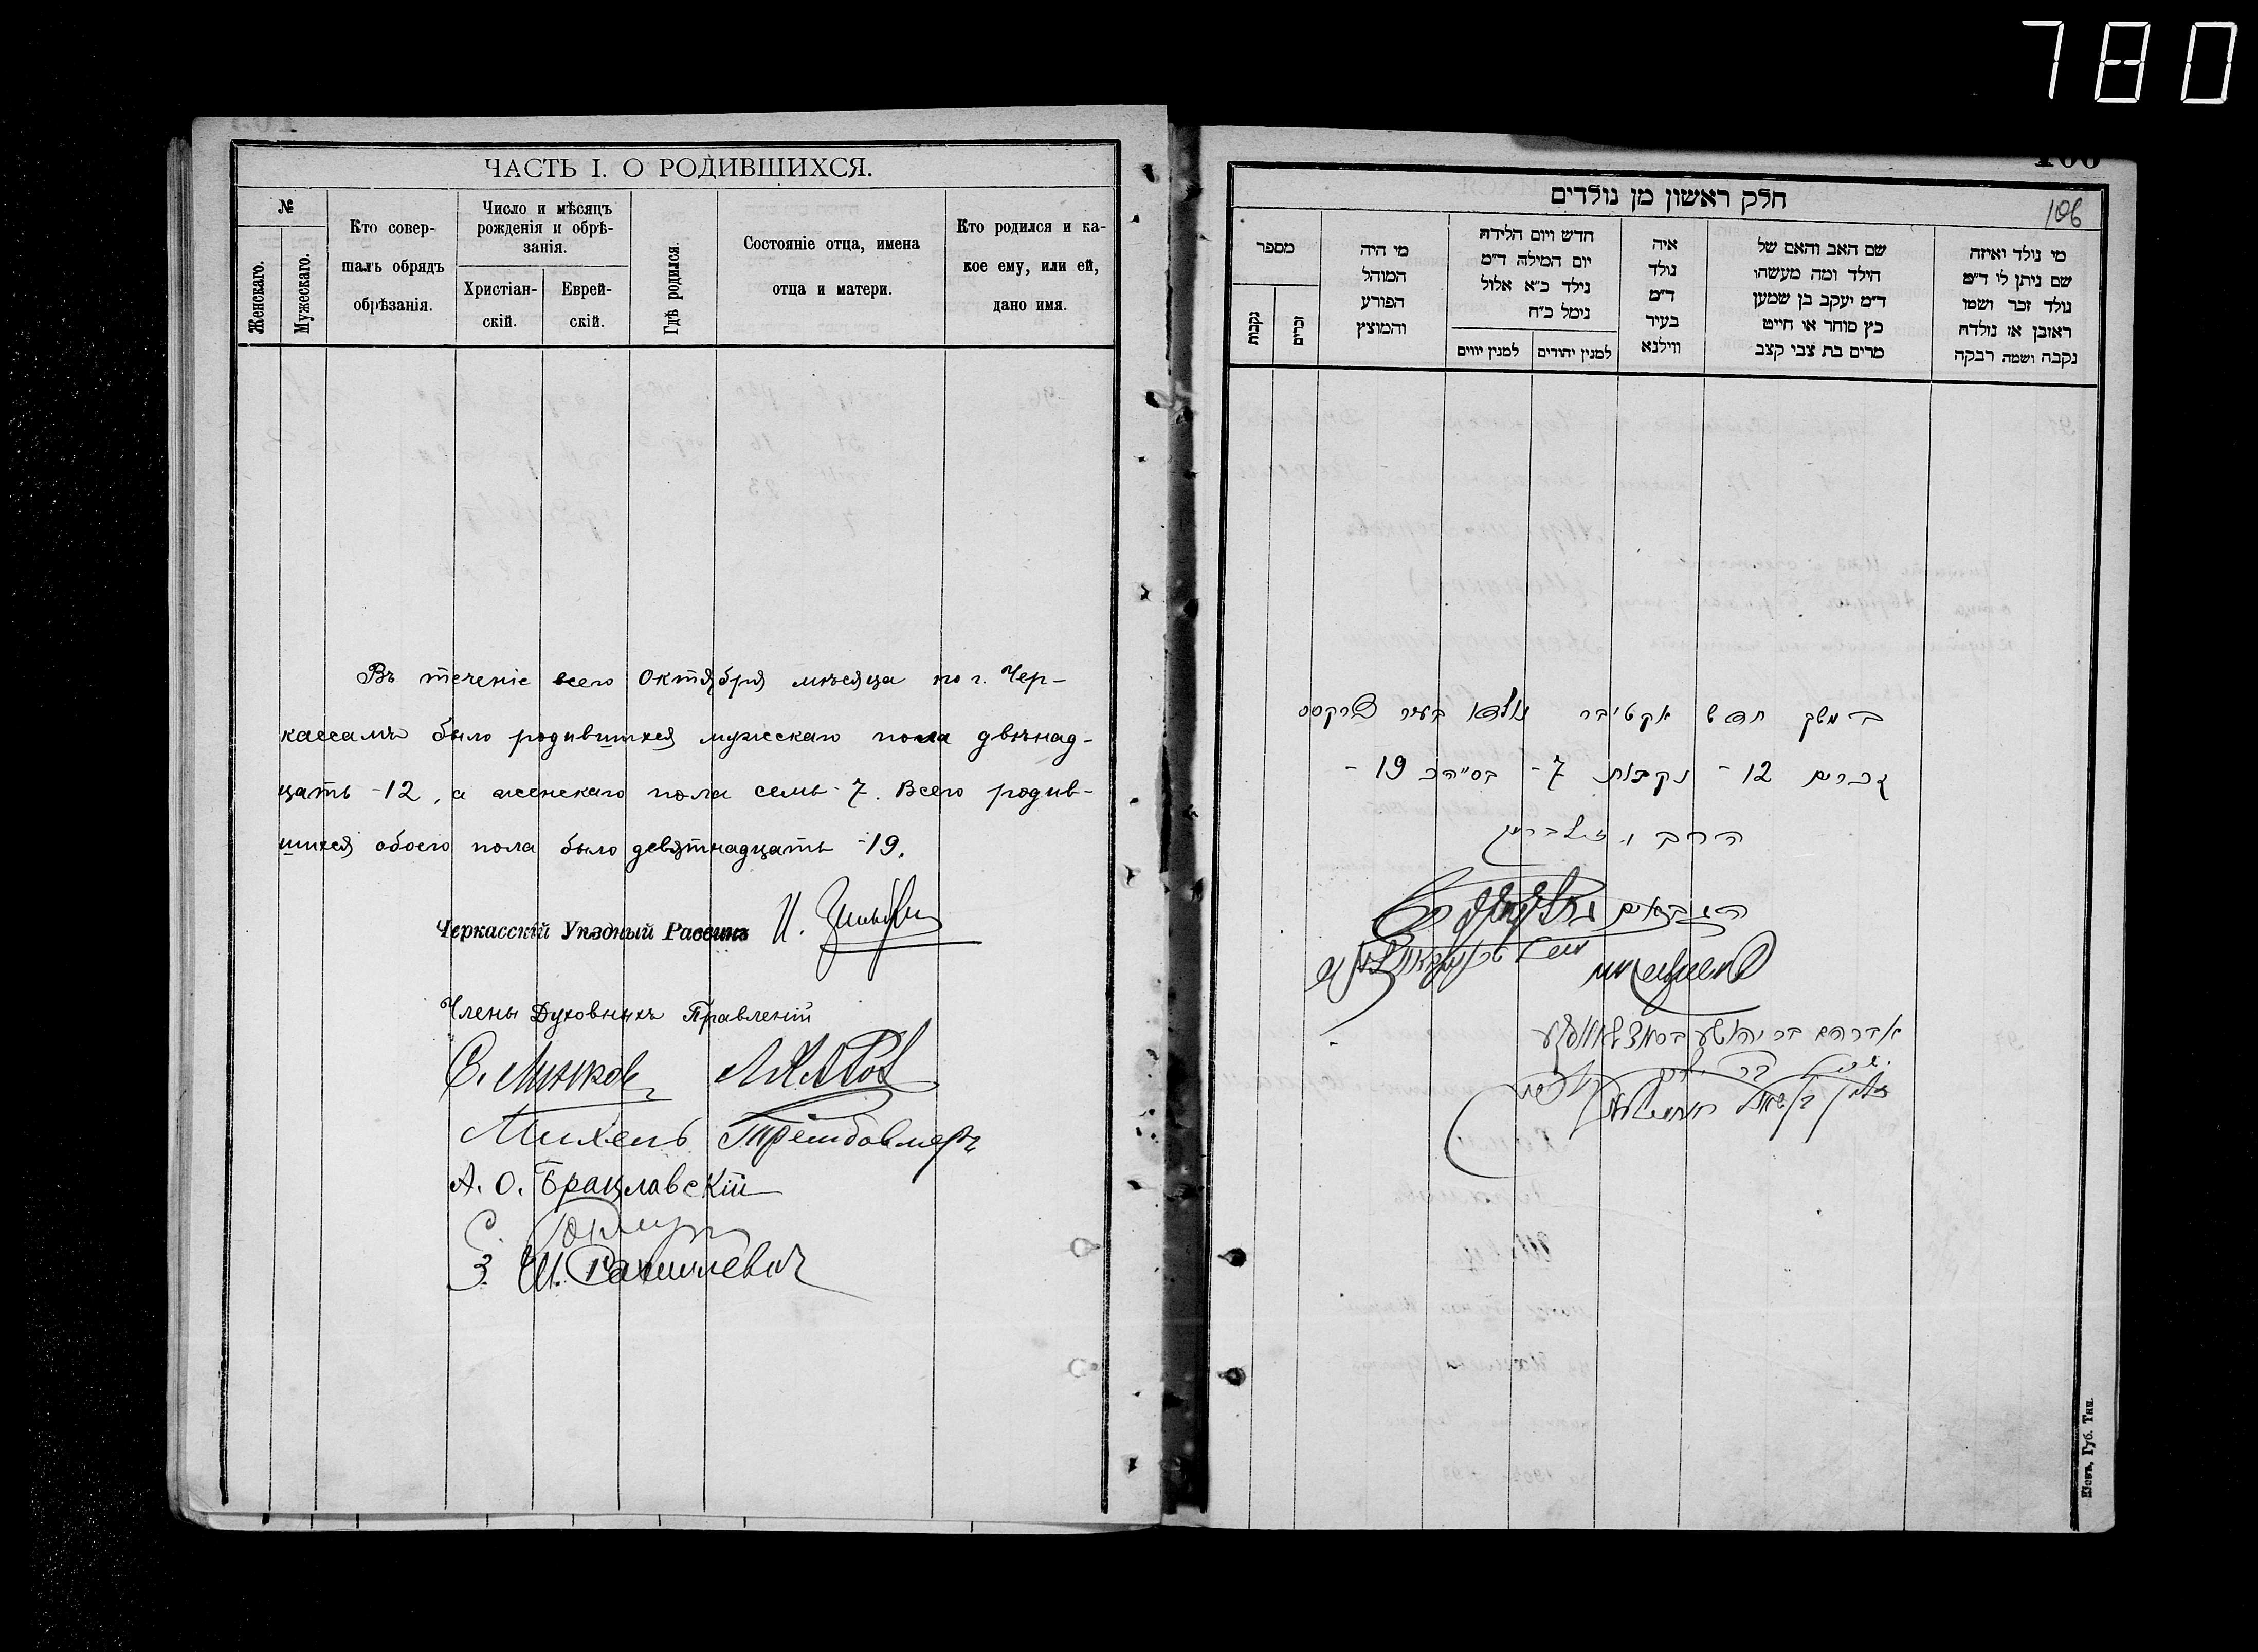 780
ЧАСТЬ I. О РОДИВШИХСЯ.
№
Женскаго.
Мужескаго.
Кто совер-
шалъ обрядъ
обрѣзанія.
Число и мѣсяцъ
рожденія и обрѣ-
занія.
Христіан-
скій.
Еврей-
скій.
Гдѣ родился.
Состояніе отца, имена
отца и матери.
Кто родился и ка-
кое ему, или ей,
дано имя.
Въ теченіе всего Октября мѣсяца по г. Чер-
кассамъ было родившихся мужескаго пола двѣнад-
цать -12, а женскаго пола семь -7. Всего родив-
шихся обоего пола было девятнадцать -19.
Черкасскій Уѣздный Раввинъ И.
Члены Духовныхъ Правленій
Михель
А. О. Брацлавскій
З. Ш. Рахмилевич
106
חלק ראשון מן נולדים
מי נולד ואיזה
שם ניתן לי ד״מ
נולד זכר ושמו
ראובן או נולדה
נקבה ושמה רבקה
שם האב והאם של
הילד ומה מעשהו
ד״מ יעקב בן שמען
כץ סוחר או חייט
מרים בת צבי קצב
איה
נולד
ד״מ
בעיר
ווילנא
חדש ויום הלידה
יום המילה ד״מ
נילד כ״א אלול
נימל כ״ח
למנין יהודים
למנין יווים
מי היה
המוהל
הפורע
והמוצץ
מספר
זכרים
נקבות
במשך חדש אקטיבר נולדו בעיר
זכרים 12 - נקבות 7 - בס״הכ 19 -
הרב
הגבאים
אברהם בר יהושע
Кіевъ, Губ. Тип.